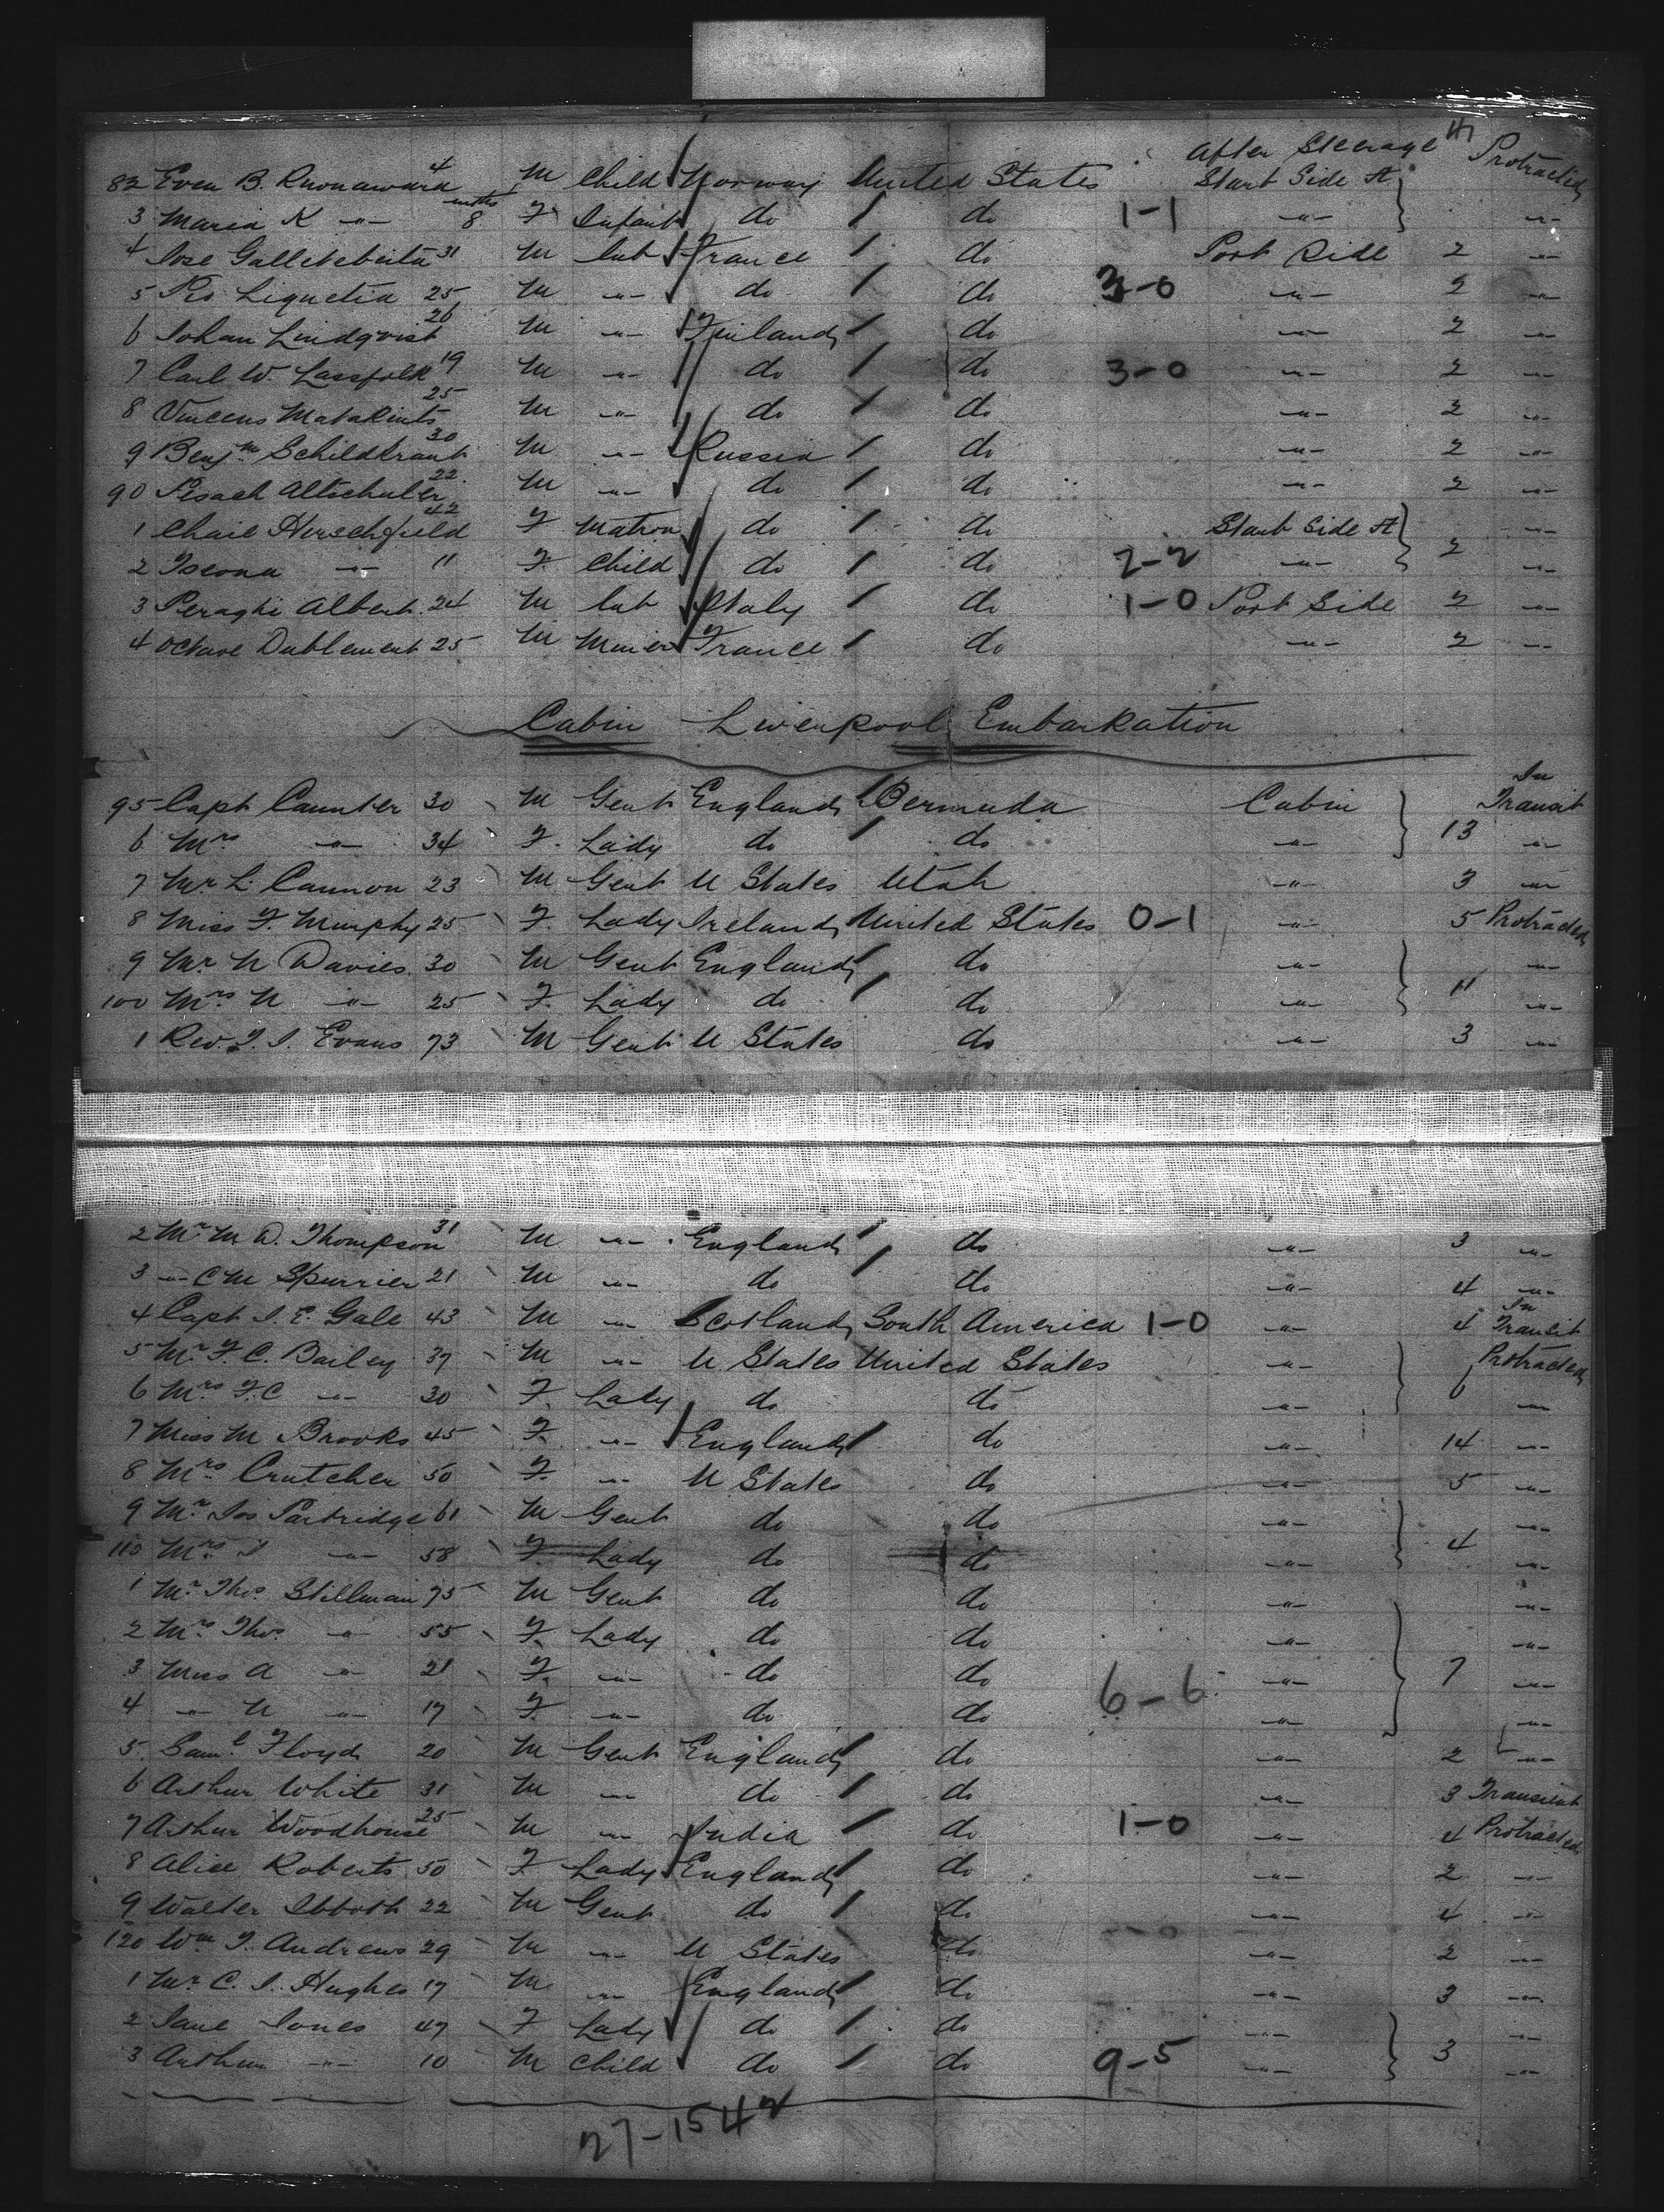 After Steerage Protracted
82 Even B. 4 M Child Norway United States Start Side A
3 Maria K -"- 8 mths F Infant do do 1-1 -"- -"-
4 Jose 31 M Lab France do Port Side 2 -"-
5 25 M -"- do do 3-0 -"- 2 -"-
6 Johan Lindqvist 26 M -"- Finland do -"- 2 -"-
7 Carl W. Lassfolk 19 M -"- do do 3-0 -"- 2 -"-
8 Vincens 25 M -"- do do -"- 2 -"-
9 Benjm Schildkraut 30 M -"- Russia do -"- 2 -"-
90 Pesach Altschuler 22 M -"- do do -"- 2 -"-
1 Chaie Herschfield 42 F Matron do do Start Side A -"-
2 -"- 11 F Child do do 2-2 -"- 2 -"-
3 Peraghi Albert 24 M Lab Italy do 1-0 Port Side 2 -"-
4 Octave Dublement 25 M Miner France do -"- 2 -"-
Cabin Liverpool Embarkation
95 Capt Caunter 30 M Gent England Bermuda Cabin In Transit
6 Mrs -"- 34 F Lady do do -"- 13 -"-
7 Mr L. Cannon 23 M Gent U States Utah -"- 3 -"-
8 Miss F. Murphy 25 F Lady Ireland United States 0-1 -"- 5 Protracted
9 Mr N Davies 30 M Gent England do -"- -"-
100 Mrs N -"- 25 F Lady do do -"- 11 -"-
1 Rev. J. J. Evans 73 M Gent U States do -"- 3 -"-
2 Mr M D. Thompson 31 M -"- England do -"- 3 -"-
3 -"- C M Spurrier 21 M -"- do do -"- 4 -"-
4 Capt J. E. Gale 43 M -"- Scotland South America 1-0 -"- 4 In Transit
5 Mr F. C. Bailey 37 M -"- U States United States -"- Protracted
6 Mrs F. C -"- 30 F Lady do do -"- 6 -"-
7 Miss M Brooks 45 F -"- England do -"- 14 -"-
8 Mrs Crutcher 50 F -"- U States do -"- 5 -"-
9 Mr Jos Partridge 61 M Gent do do -"- -"-
110 Mrs J -"- 58 F Lady do do -"- 4 -"-
1 Mr Thos. Stillman 75 M Gent do do -"- -"-
2 Mrs Thos. -"- 55 F Lady do do -"- -"-
3 Miss A -"- 21 F -"- do do -"- 7 -"-
4 -"- N -"- 17 F -"- do do 6-6 -"- -"-
5 Saml Floyd 20 M Gent England do -"- 2 -"-
6 Arthur White 31 M -"- do do -"- 3 Transient
7 Arthur Woodhouse 25 M -"- India do 1-0 -"- 4 Protracted
8 Alice Roberts 50 F Lady England do -"- 2 -"-
9 Walter Ibbott 22 M Gent do do -"- 4 -"-
120 Wm J. Andrews 29 M -"- U States do -"- 2 -"-
1 Mr C. J. Hughes 17 M -"- England do -"- 3 -"-
2 Jane Jones 47 F Lady do do -"- -"-
3 Arthur -"- 10 M Child do do 9-5 -"- 3 -"-
27-15 42